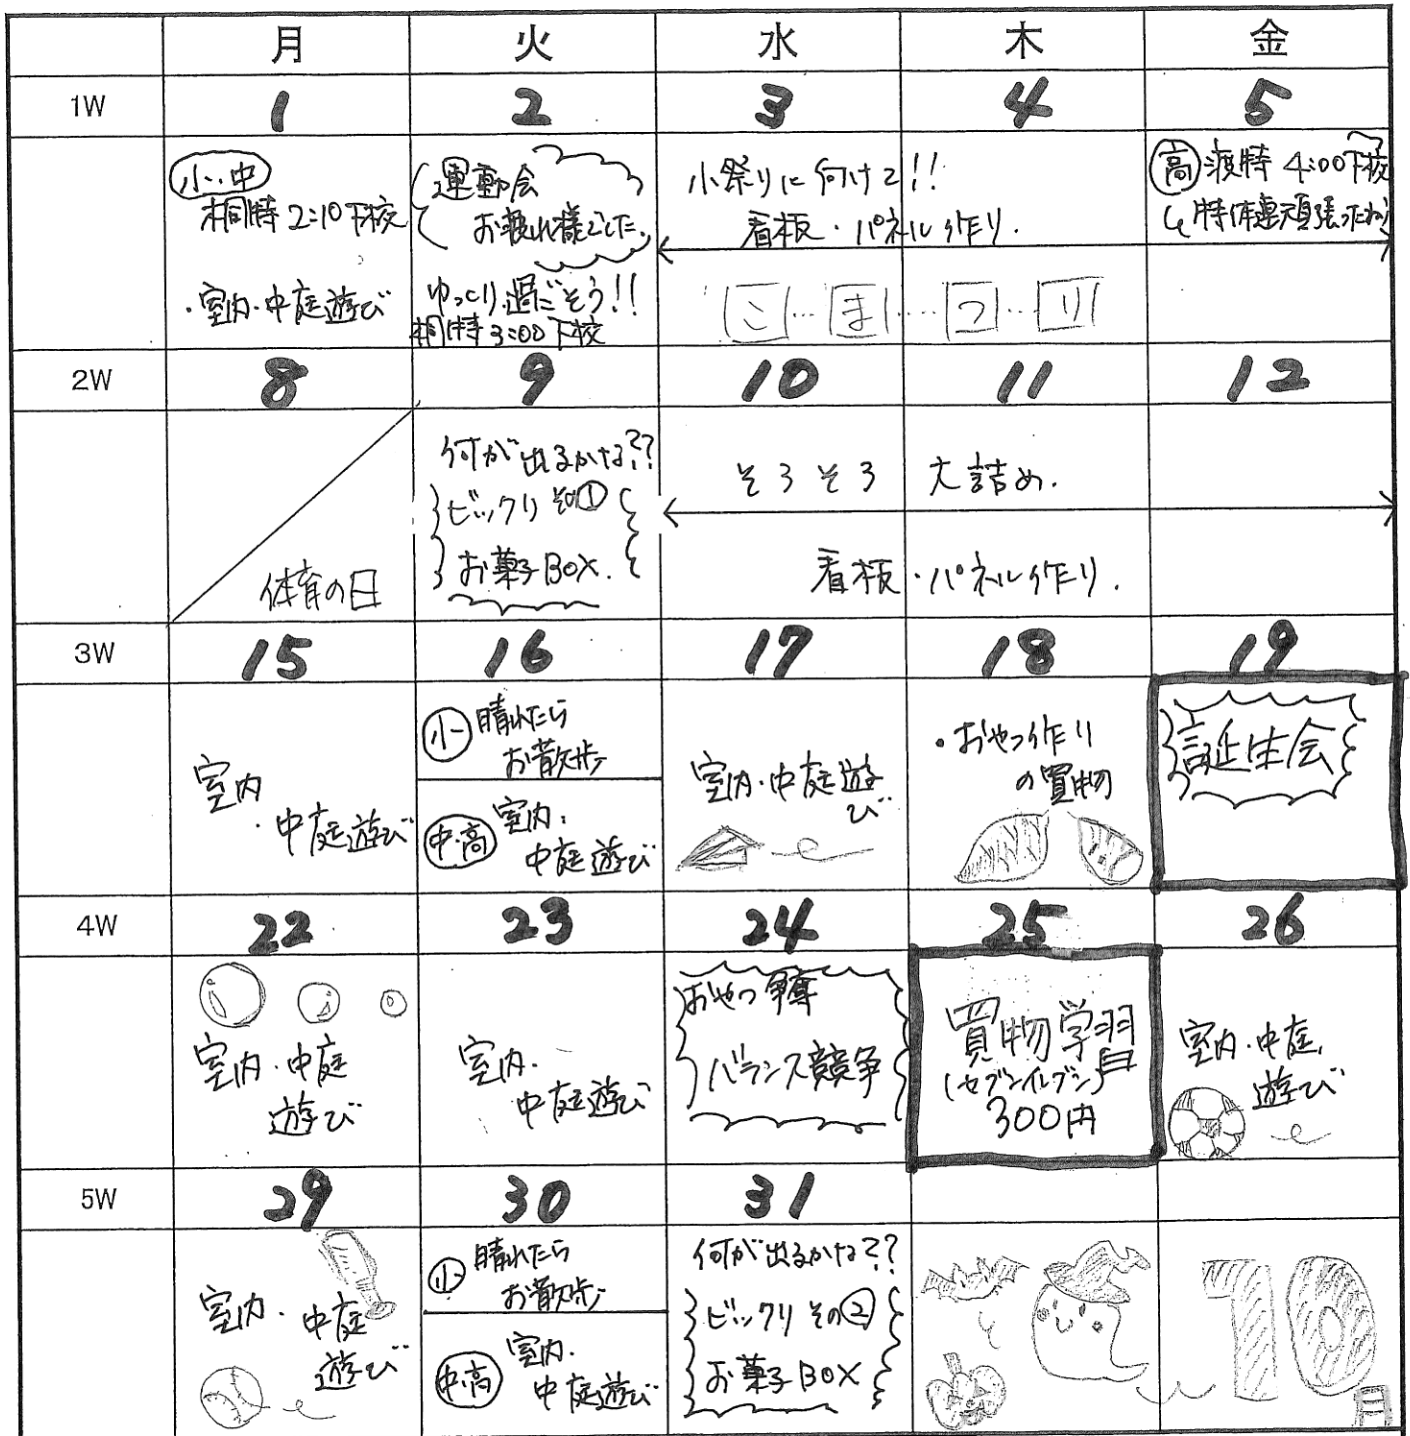 月 火 水 木 金
1W 1 2 3 4 5
小・中
桐特 2:10下校
・室内・中庭遊び
運動会
お疲れ様でした。
ゆっくり過ごそう!!
桐特 3:00 下校
小祭りに向けて!!
看板・パネル作り.
こ…ま…つ…り
高 渡特 4:00下校
特体連頑張ったね
2W 8 9 10 11 12
体育の日
何が出るかな??
ビックリ その①
お菓子BOX.
そろそろ 大詰め.
看板・パネル作り.
3W 15 16 17 18 19
室内
・中庭遊び
小 晴れたら
お散歩
中・高 室内・
中庭遊び
室内・中庭遊
び
・おやつ作り
の買物
誕生会
4W 22 23 24 25 26
室内・中庭
遊び
室内・
中庭遊び
おやつ争奪
バランス競争
買物学習
(セブンイレブン)
300円
室内・中庭
遊び
5W 29 30 31
室内・中庭
遊び
小 晴れたら
お散歩
中・高 室内・
中庭遊び
何が出るかな??
ビックリ その②
お菓子BOX
10
月